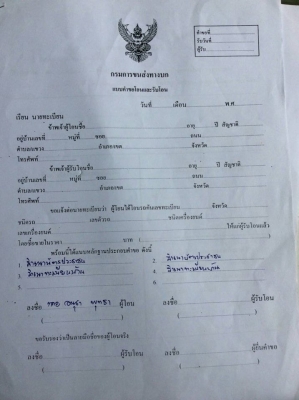 คำขอที่
รับวันที่
ผู้รับ
กรมการขนส่งทางบก
แบบคำขอโอนและรับโอน
วันที่ เดือน พ.ศ.
เรียน นายทะเบียน
ข้าพเจ้าผู้โอนชื่อ อายุ ปี สัญชาติ
อยู่บ้านเลขที่ หมู่ที่ ซอย ถนน
ตำบล/แขวง อำเภอ/เขต จังหวัด
โทรศัพท์
ข้าพเจ้าผู้รับโอนชื่อ อายุ ปี สัญชาติ
อยู่บ้านเลขที่ หมู่ที่ ซอย ถนน
ตำบล/แขวง อำเภอ/เขต จังหวัด
โทรศัพท์
ขอแจ้งต่อนายทะเบียนว่า ผู้โอนได้โอนรถคันเลขทะเบียน จังหวัด
ชนิดรถ เลขตัวรถ ชนิดเครื่องยนต์
เลขเครื่องยนต์ ให้แก่ผู้รับโอนแล้ว
โดยซื้อขายในราคา บาท ( )
พร้อมนี้ได้แนบหลักฐานประกอบคำขอ ดังนี้
1. สำเนาบัตรประชาชน 2. สำเนาบัตรประชาชน
3. สำเนาทะเบียนบ้าน 4. สำเนาทะเบียนบ้าน
5. 6.
ลงชื่อ ผู้โอน ลงชื่อ ผู้รับโอน
( ) ( )
ขอรับรองว่าเป็นลายมือชื่อของผู้โอนจริง
ลงชื่อ ผู้รับโอน ลงชื่อ ผู้รับคำขอ
( ) ( )